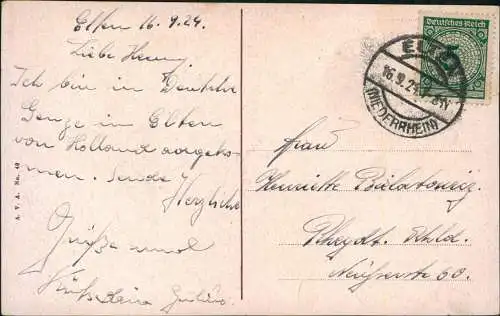 Elten 16.9.24.
Liebe Henny.
Ich bin in Deutsche
Grenze in Elten
von Holland angeko-
men. Sende
Herzliche
Grüße und
Küsse
A. V. A. No. 49
Deutsches Reich
ELTEN
16.9.24
(NIEDERRHEIN)
Frau
Henriette
Rheydt. Rhld.
Neußerstr 60.